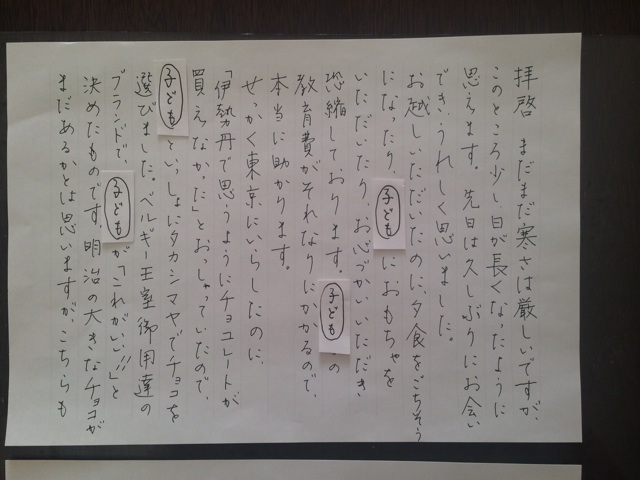 拝啓 まだまだ寒さは厳しいですが、
このところ少し日が長くなったように
思えます。先日は久しぶりにお会い
でき、うれしく思いました。
お越しいただいたのに、夕食をごちそう
になったり、子どもにおもちゃを
いただいたり、お心づかいいただき
恐縮しております。子どもの
教育費がそれなりにかかるので、
本当に助かります。
せっかく東京にいらしたのに、
「伊勢丹で思うようにチョコレートが
買えなかった」とおっしゃっていたので、
子どもといっしょにタカシマヤでチョコを
選びました。ベルギー王室御用達の
ブランドで、子どもが「これがいい!!」と
決めたものです。明治の大きなチョコが
まだあるかとは思いますが、こちらも